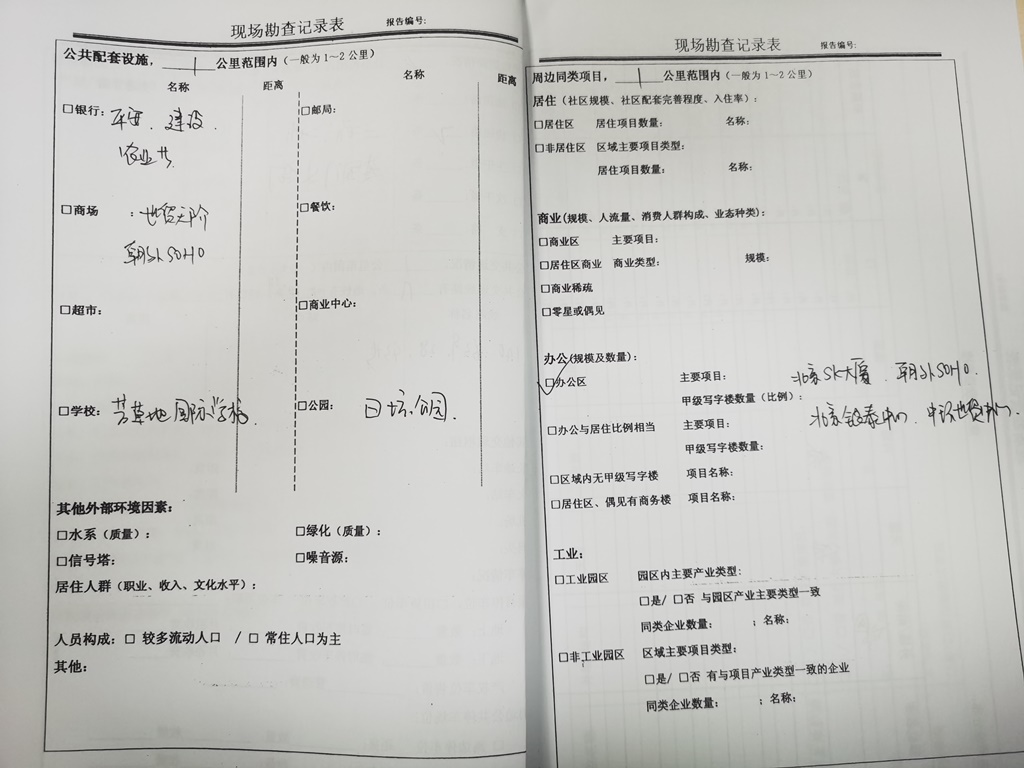 现场勘查记录表 报告编号:
公共配套设施， 1 公里范围内（一般为1～2公里）
名称 距离 名称 距离
□银行: 平安、建设、 □邮局:
农业等
□商场 : 世贸天阶 □餐饮:
朝外SOHO
□超市: □商业中心:
□学校: 芳草地国际学校 □公园: 日坛公园.
其他外部环境因素:
□水系（质量）: □绿化（质量）:
□信号塔: □噪音源:
居住人群（职业、收入、文化水平）:
人员构成: □ 较多流动人口 / □ 常住人口为主
其他:
现场勘查记录表 报告编号:
周边同类项目， 1 公里范围内（一般为1～2公里）
居住（社区规模、社区配套完善程度、入住率）:
□居住区 居住项目数量: 名称:
□非居住区 区域主要项目类型:
居住项目数量: 名称:
商业(规模、人流量、消费人群构成、业态种类):
□商业区 主要项目:
□居住区商业 商业类型: 规模:
□商业稀疏
□零星或偶见
办公(规模及数量):
☑办公区 主要项目: 北京SK大厦、朝外SOHO.
甲级写字楼数量（比例）:
□办公与居住比例相当 主要项目: 北京银泰中心、中环世贸中心.
甲级写字楼数量:
□区域内无甲级写字楼 项目名称:
□居住区、偶见有商务楼 项目名称:
工业:
□工业园区 园区内主要产业类型:
□是/ □否 与园区产业主要类型一致
同类企业数量: ；名称:
□非工业园区 区域主要项目类型:
□是/ □否 有与项目产业类型一致的企业
同类企业数量: ；名称: